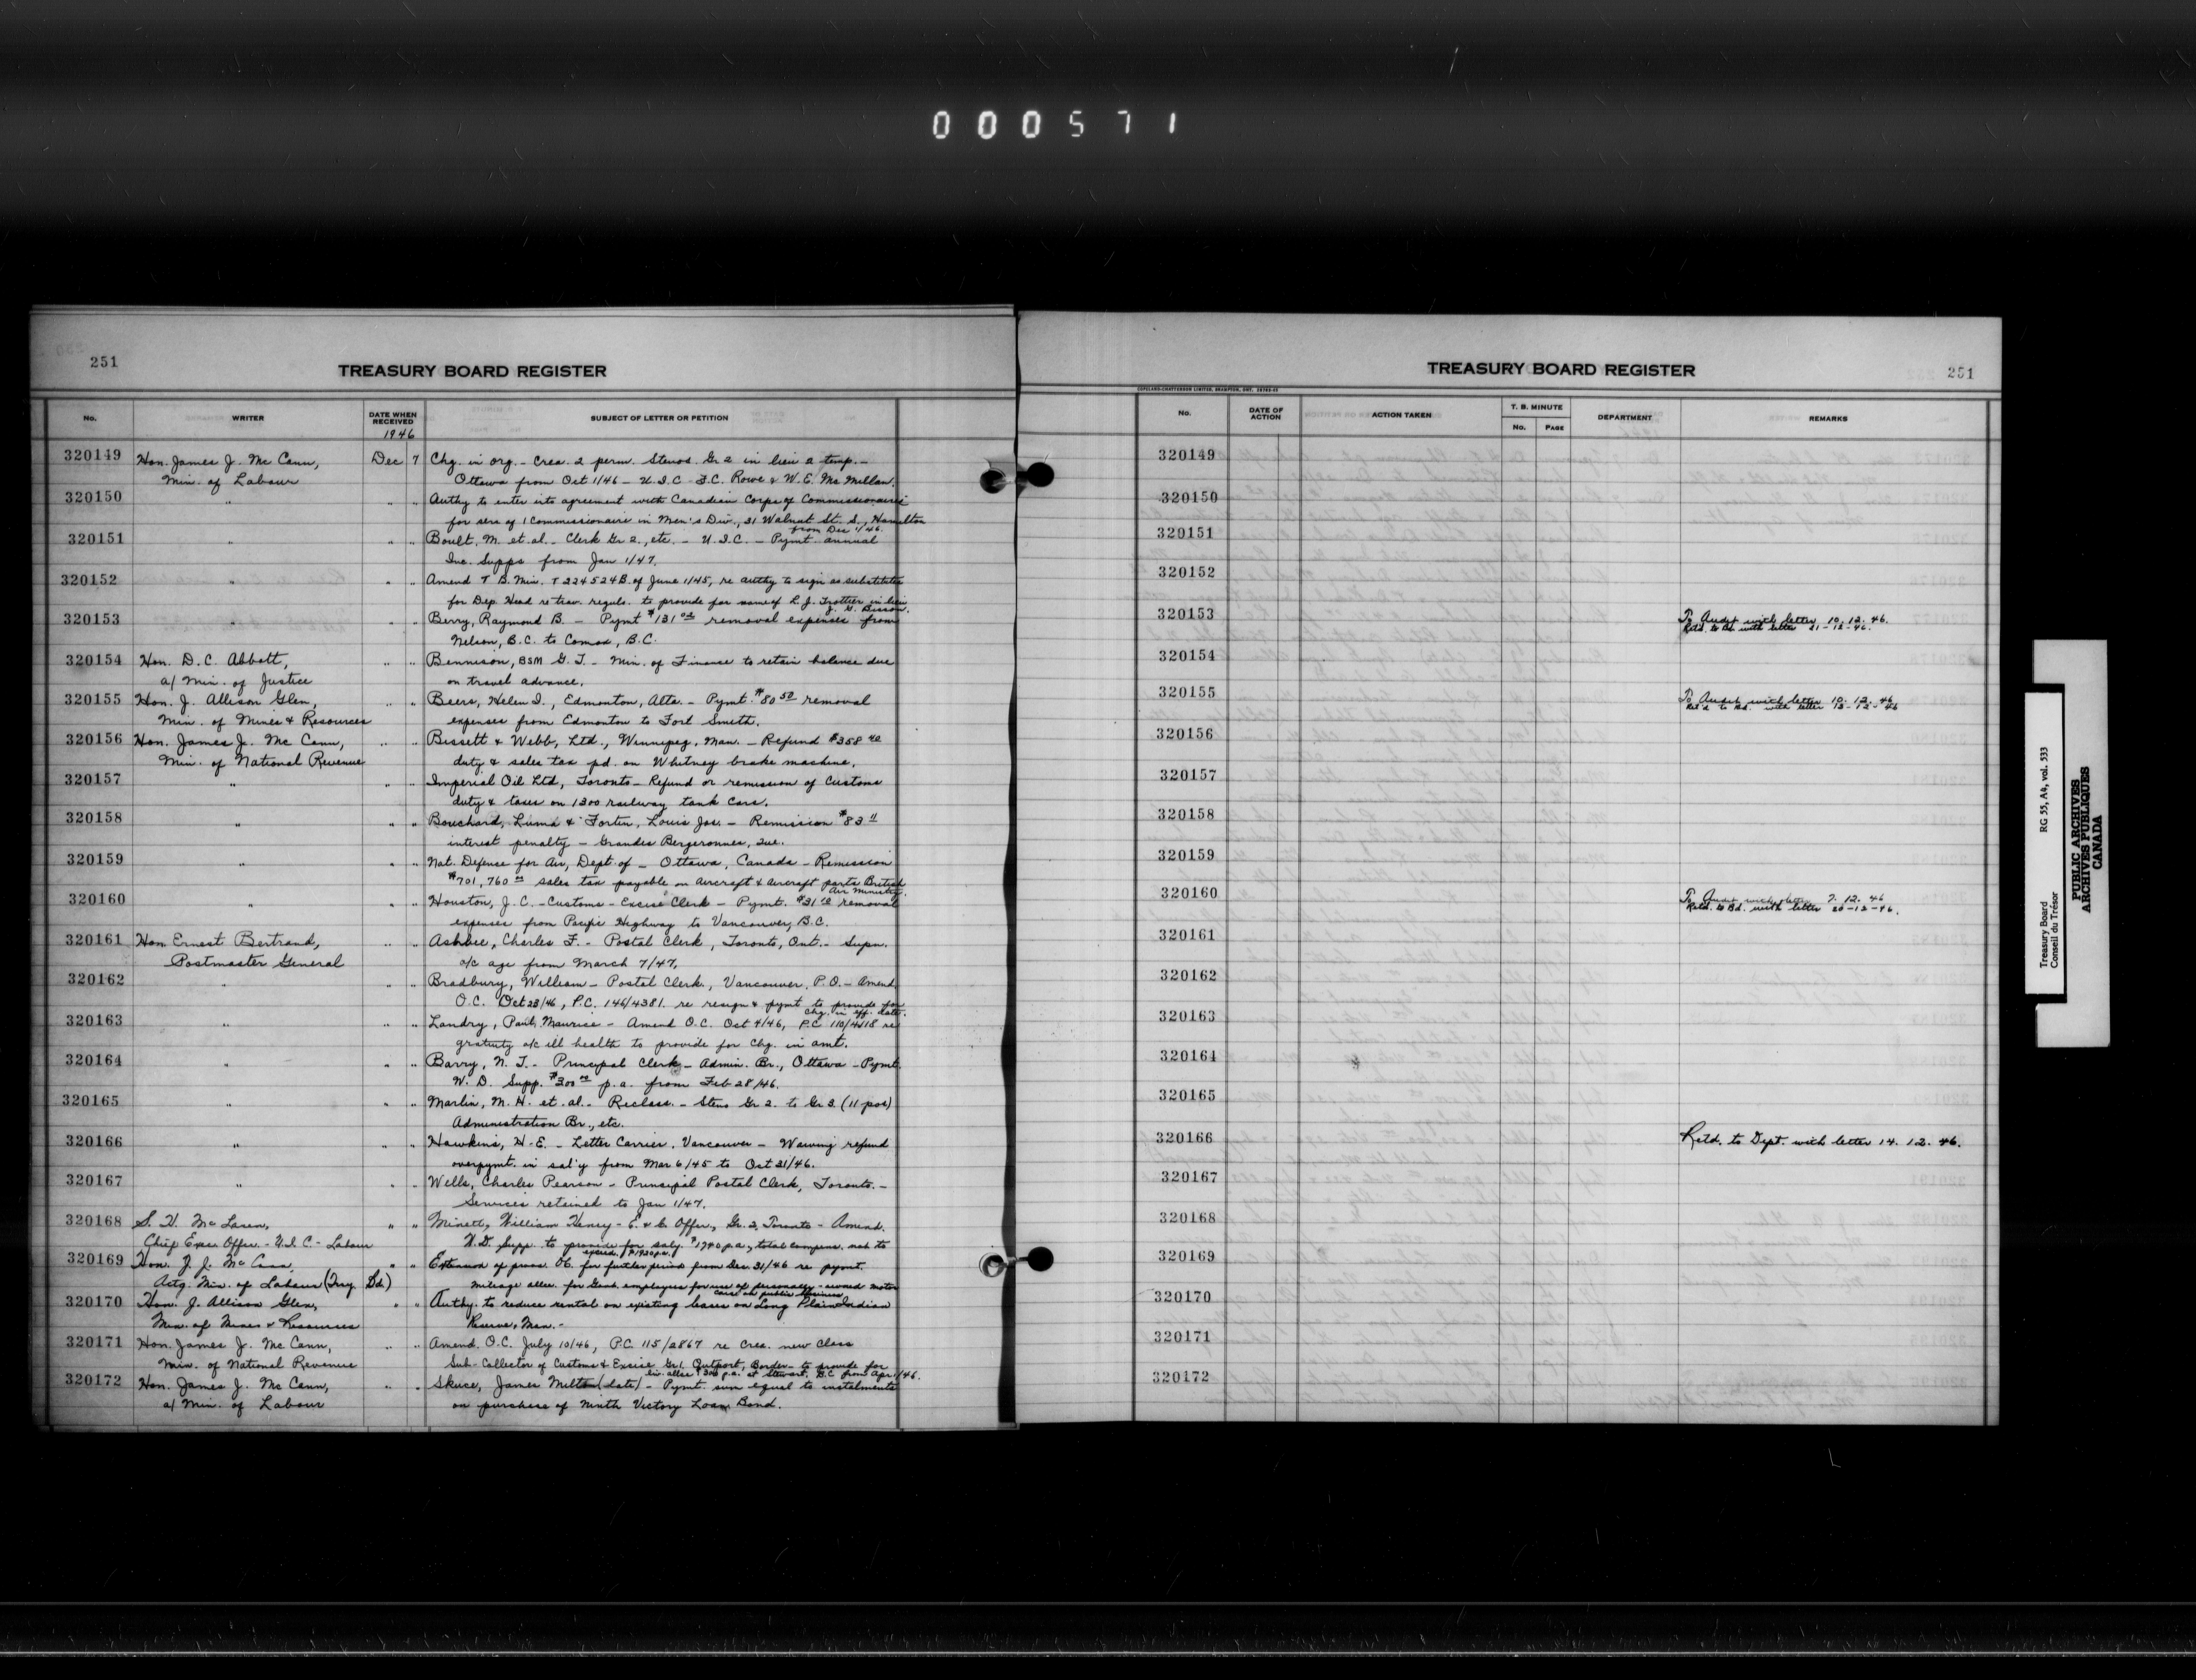 000571
251
TREASURY BOARD REGISTER
No.
WRITER
DATE WHEN RECEIVED
SUBJECT OF LETTER OR PETITION
1946
320149 Hon. James J. Mc Cann, Dec 7 Chg. in org. - Crea. 2 perm. Stenos. Gr 2 in lieu 2 temp. -
Min. of Labour Ottawa from Oct 1/46 - U.I.C. - Rowe & W.E. Mc Millan.
320150 " " " Authy to enter into agreement with Canadian Corps of Commissionaires
for serv of 1 Commissionaire in Men's Div., 31 Walnut St. S., Hamilton
from Dec 1/46.
320151 " " " Boult, M. et. al. - Clerk Gr 2, etc. - U.I.C. - Pymt. annual
Inc. Supps from Jan 1/47.
320152 " " " Amend T.B. Min. T 224524B of June 1/45, re authy to sign as substitute
for Dep. Head re trav. reguls. to provide for name of L. J. Trottier in lieu
J. G. Bisson.
320153 " " " Berry, Raymond B. - Pymt $131 removal expenses from
Nelson, B.C. to Comox, B.C.
320154 Hon. D. C. Abbott, " " Bennison, BSM G. T. - Min. of Finance to retain balance due
a/ Min. of Justice on travel advance.
320155 Hon. J. Allison Glen, " " Beers, Helen I., Edmonton, Alta. - Pymt. $80 50 removal
Min. of Mines & Resources expenses from Edmonton to Fort Smith.
320156 Hon. James J. Mc Cann, " " Bissett & Webb, Ltd., Winnipeg, Man. - Refund $358 40
Min. of National Revenue duty & sales tax pd. on Whitney brake machine.
320157 " " " Imperial Oil Ltd, Toronto - Refund or remission of Customs
duty & taxes on 1300 railway tank cars.
320158 " " " Bouchard, Luma & Fortin, Louis Jos. - Remission $83 11
interest penalty - Grandes Bergeronnes, Que.
320159 " " " Nat. Defense for Air, Dept. of - Ottawa, Canada - Remission
$701,760 00 sales tax payable on Aircraft & Aircraft parts British
Air Ministry.
320160 " " " Houston, J. C. - Customs - Excise Clerk - Pymt. $31 removal
expenses from Pacific Highway to Vancouver, B.C.
320161 Hon. Ernest Bertrand, " " Ashbee, Charles F. - Postal Clerk, Toronto, Ont. - Supn.
Postmaster General a/c age from March 7/47.
320162 " " " Bradbury, William - Postal Clerk, Vancouver, P.O. - Amend
O.C. Oct 23/46, P.C. 146/4381. re resign & pymt to provide for
chg. in eff. date.
320163 " " " Landry, Paul Maurice - Amend O.C. Oct 4/46, P.C. 110/4118 re
gratuity a/c ill health to provide for Chg. in amt.
320164 " " " Barry, N. J. - Principal Clerk - Admin. Br., Ottawa - Pymt.
W. D. Supp. $300 00 p.a. from Feb 28/46.
320165 " " " Marlin, M. H. et. al. - Reclass. - Steno Gr 2. to Gr 3. (11 pos)
Administration Br., etc.
320166 " " " Hawkins, H. E. - Letter Carrier, Vancouver - Waiving refund
overpymt. in sal'y from Mar 6/45 to Oct 31/46.
320167 " " " Wells, Charles Pearson - Principal Postal Clerk, Toronto. -
Services retained to Jan 1/47.
320168 S. H. Mc Laren, " " Minett, William Henry - E. & C. Offer., Gr. 2, Toronto - Amend.
Chief Exec. Offer. - U.I.C. - Labour W.D. Supp. to provide for saly. $1740 p.a., total compens. not to
exceed $1920 p.a.
320169 Hon. J. J. Mc Cann, " " Extension of provs. O.C. for further period from Dec. 31/46 re pymt.
Actg. Min. of Labour (Try Bd) mileage allce. for Govt. employees for use of personally-owned motor
cars on public business
320170 Hon. J. Allison Glen, " " Authy. to reduce rental on existing leases on Long Plain Indian
Min. of Mines & Resources Reserve, Man. -
320171 Hon. James J. Mc Cann, " " Amend. O.C. July 10/46, P.C. 115/2867 re Crea. new Class
Min. of National Revenue Sub-Collector of Customs & Excise Gr 1, Outport, Border - to provide for
liv. allce $300 p.a. at Stewart, B.C. from Apr 1/46.
320172 Hon. James J. Mc Cann, " " Skuce, James Milton (late) - Pymt. sum equal to instalments
a/ Min. of Labour on purchase of Ninth Victory Loan Bond.
TREASURY BOARD REGISTER
251
COPELAND-CHATTERSON LIMITED, BRAMPTON, ONT.
No.
DATE OF ACTION
ACTION TAKEN
T. B. MINUTE
No.
PAGE
DEPARTMENT
REMARKS
320149
320150
320151
320152
320153 To Audit with letter 10.12.46.
Retd. to Bd. with letter 21-12-46.
320154
320155 To Audit with letter 10.12.46
Ret'd to Bd. with letter 13-12-46
320156
320157
320158
320159
320160 To Audit with letter 9.12.46
Retd. to Bd. with letter 20-12-46.
320161
320162
320163
320164
320165
320166 Retd. to Dept. with letter 14.12.46.
320167
320168
320169
320170
320171
320172
Treasury Board RG 55, A4, vol. 533
Conseil du Trésor
PUBLIC ARCHIVES
ARCHIVES PUBLIQUES
CANADA